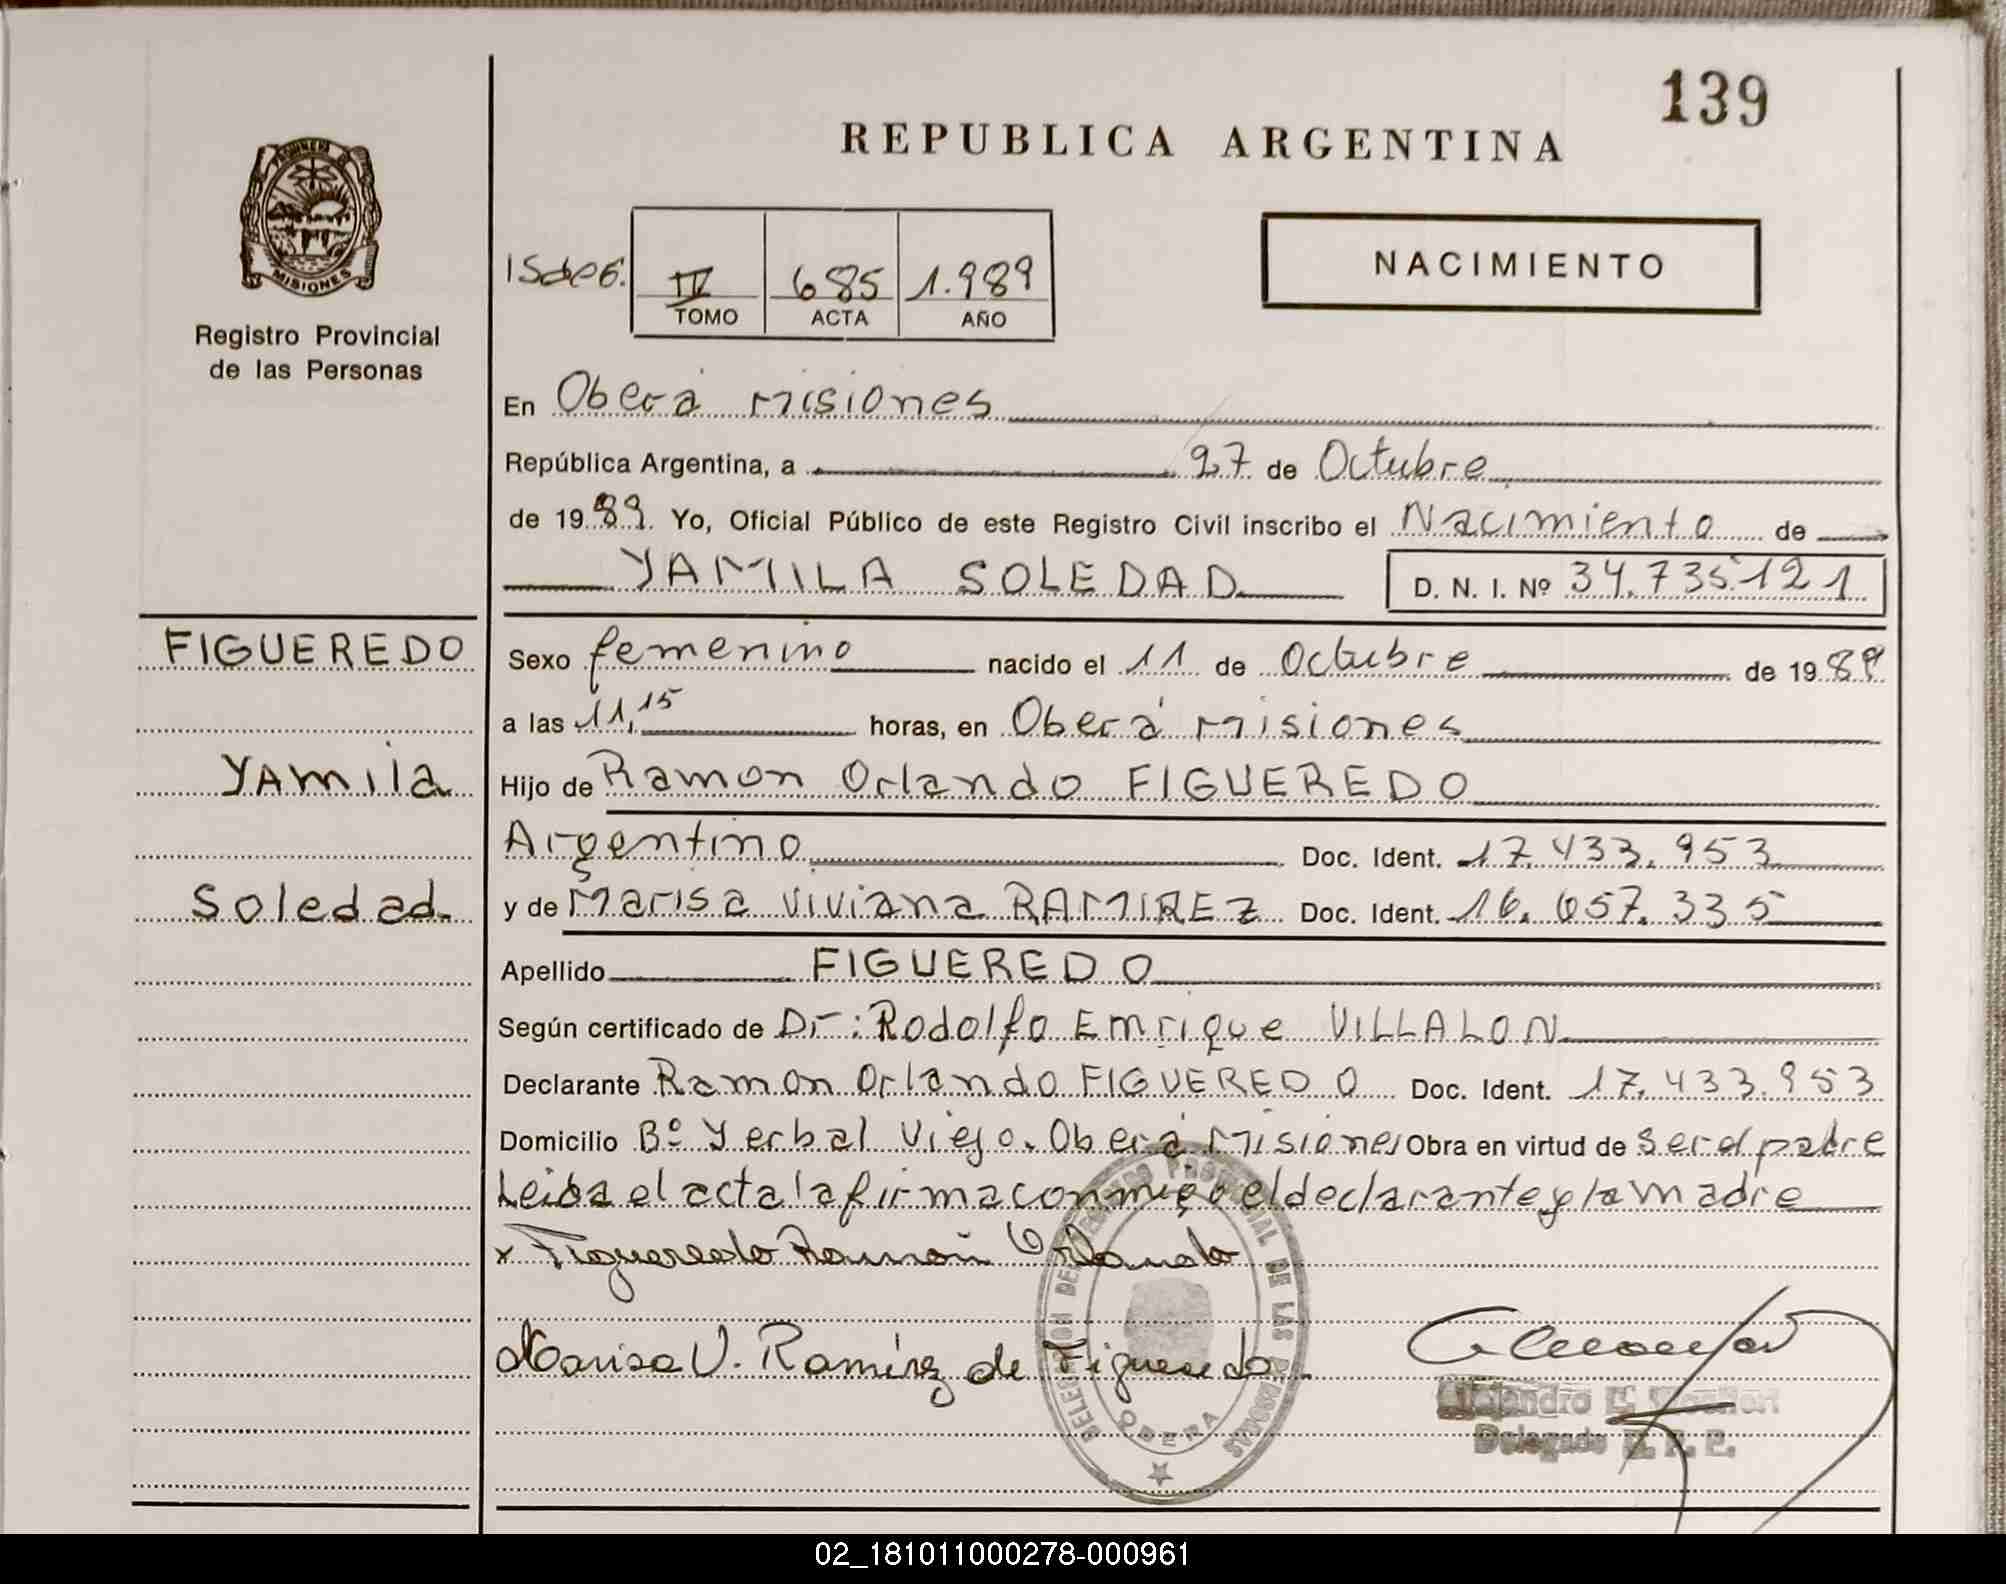 139
REPUBLICA ARGENTINA
PROVINCIA DE
MISIONES
Registro Provincial
de las Personas
IV 685 1.989
TOMO ACTA AÑO
NACIMIENTO
En Oberá Misiones
República Argentina, a 27 de Octubre
de 1989. Yo, Oficial Público de este Registro Civil inscribo el Nacimiento de
YAMILA SOLEDAD D. N. I. Nº 34.735.121
FIGUEREDO
Yamila
Soledad.
Sexo femenino nacido el 11 de Octubre de 1989
a las 11,15 horas, en Oberá Misiones
Hijo de Ramon Orlando FIGUEREDO
Argentino Doc. Ident. 17.433.953
y de Marisa Viviana RAMIREZ Doc. Ident. 16.657.335
Apellido FIGUEREDO
Según certificado de Dr: Rodolfo Enrique VILLALON
Declarante Ramon Orlando FIGUEREDO Doc. Ident. 17.433.953
Domicilio Bº Yerbal Viejo. Oberá Misiones Obra en virtud de ser el padre
Leida el acta la firma conmigo el declarante y la madre
x Figueredo Ramón Orlando
Marisa V. Ramírez de Figueredo.
DELEGACION DEL REGISTRO PROVINCIAL DE LAS PERSONAS
OBERA
Alejandro
Delegado R. P. P.
02_181011000278-000961